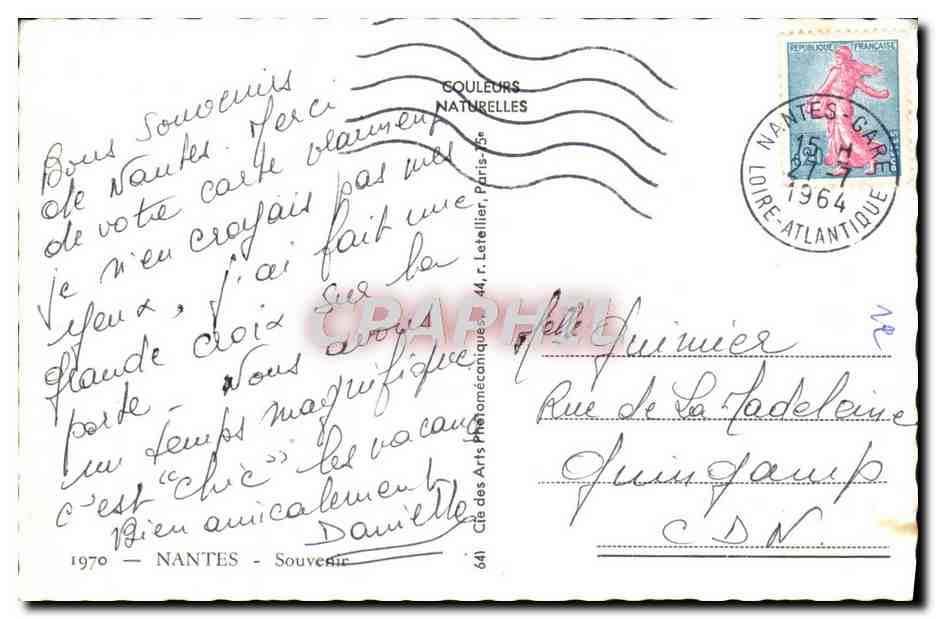 Bons Souvenirs
de Nantes. Merci
de votre carte vraiment
je n'en croyais pas mes
yeux, j'ai fait une
grande croix sur la
porte - Nous avons
un temps magnifique
c'est "chic" les vacances
Bien amicalement
Danielle
1970 — NANTES - Souvenir
COULEURS
NATURELLES
64) Cie des Arts Photomécaniques, 44, r. Letellier, Paris-15e
CPARAMA
REPUBLIQUE FRANÇAISE
0,20
NANTES-GARE
15 H
27-7
1964
LOIRE-ATLANTIQUE
12
Melle Quimier
Rue de La Madeleine
Guingamp
C.D.N.